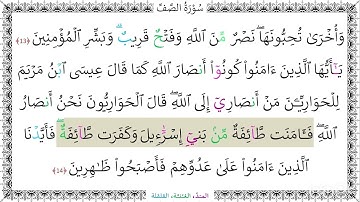 سُورَةُ الصَّفِّ
وَأُخْرَىٰ تُحِبُّونَهَا ۖ نَصْرٌ مِّنَ اللَّهِ وَفَتْحٌ قَرِيبٌ ۗ وَبَشِّرِ الْمُؤْمِنِينَ ﴿١٣﴾
يَـٰٓأَيُّهَا الَّذِينَ ءَامَنُوا۟ كُونُوٓا۟ أَنصَارَ اللَّهِ كَمَا قَالَ عِيسَى ٱبْنُ مَرْيَمَ
لِلْحَوَارِيِّـۧنَ مَنْ أَنصَارِىٓ إِلَى اللَّهِ ۖ قَالَ الْحَوَارِيُّونَ نَحْنُ أَنصَارُ
اللَّهِ ۖ فَـَٔامَنَت طَّآئِفَةٌ مِّنۢ بَنِىٓ إِسْرَٰٓءِيلَ وَكَفَرَت طَّآئِفَةٌ ۖ فَأَيَّدْنَا
الَّذِينَ ءَامَنُوا۟ عَلَىٰ عَدُوِّهِمْ فَأَصْبَحُوا۟ ظَـٰهِرِينَ ﴿١٤﴾